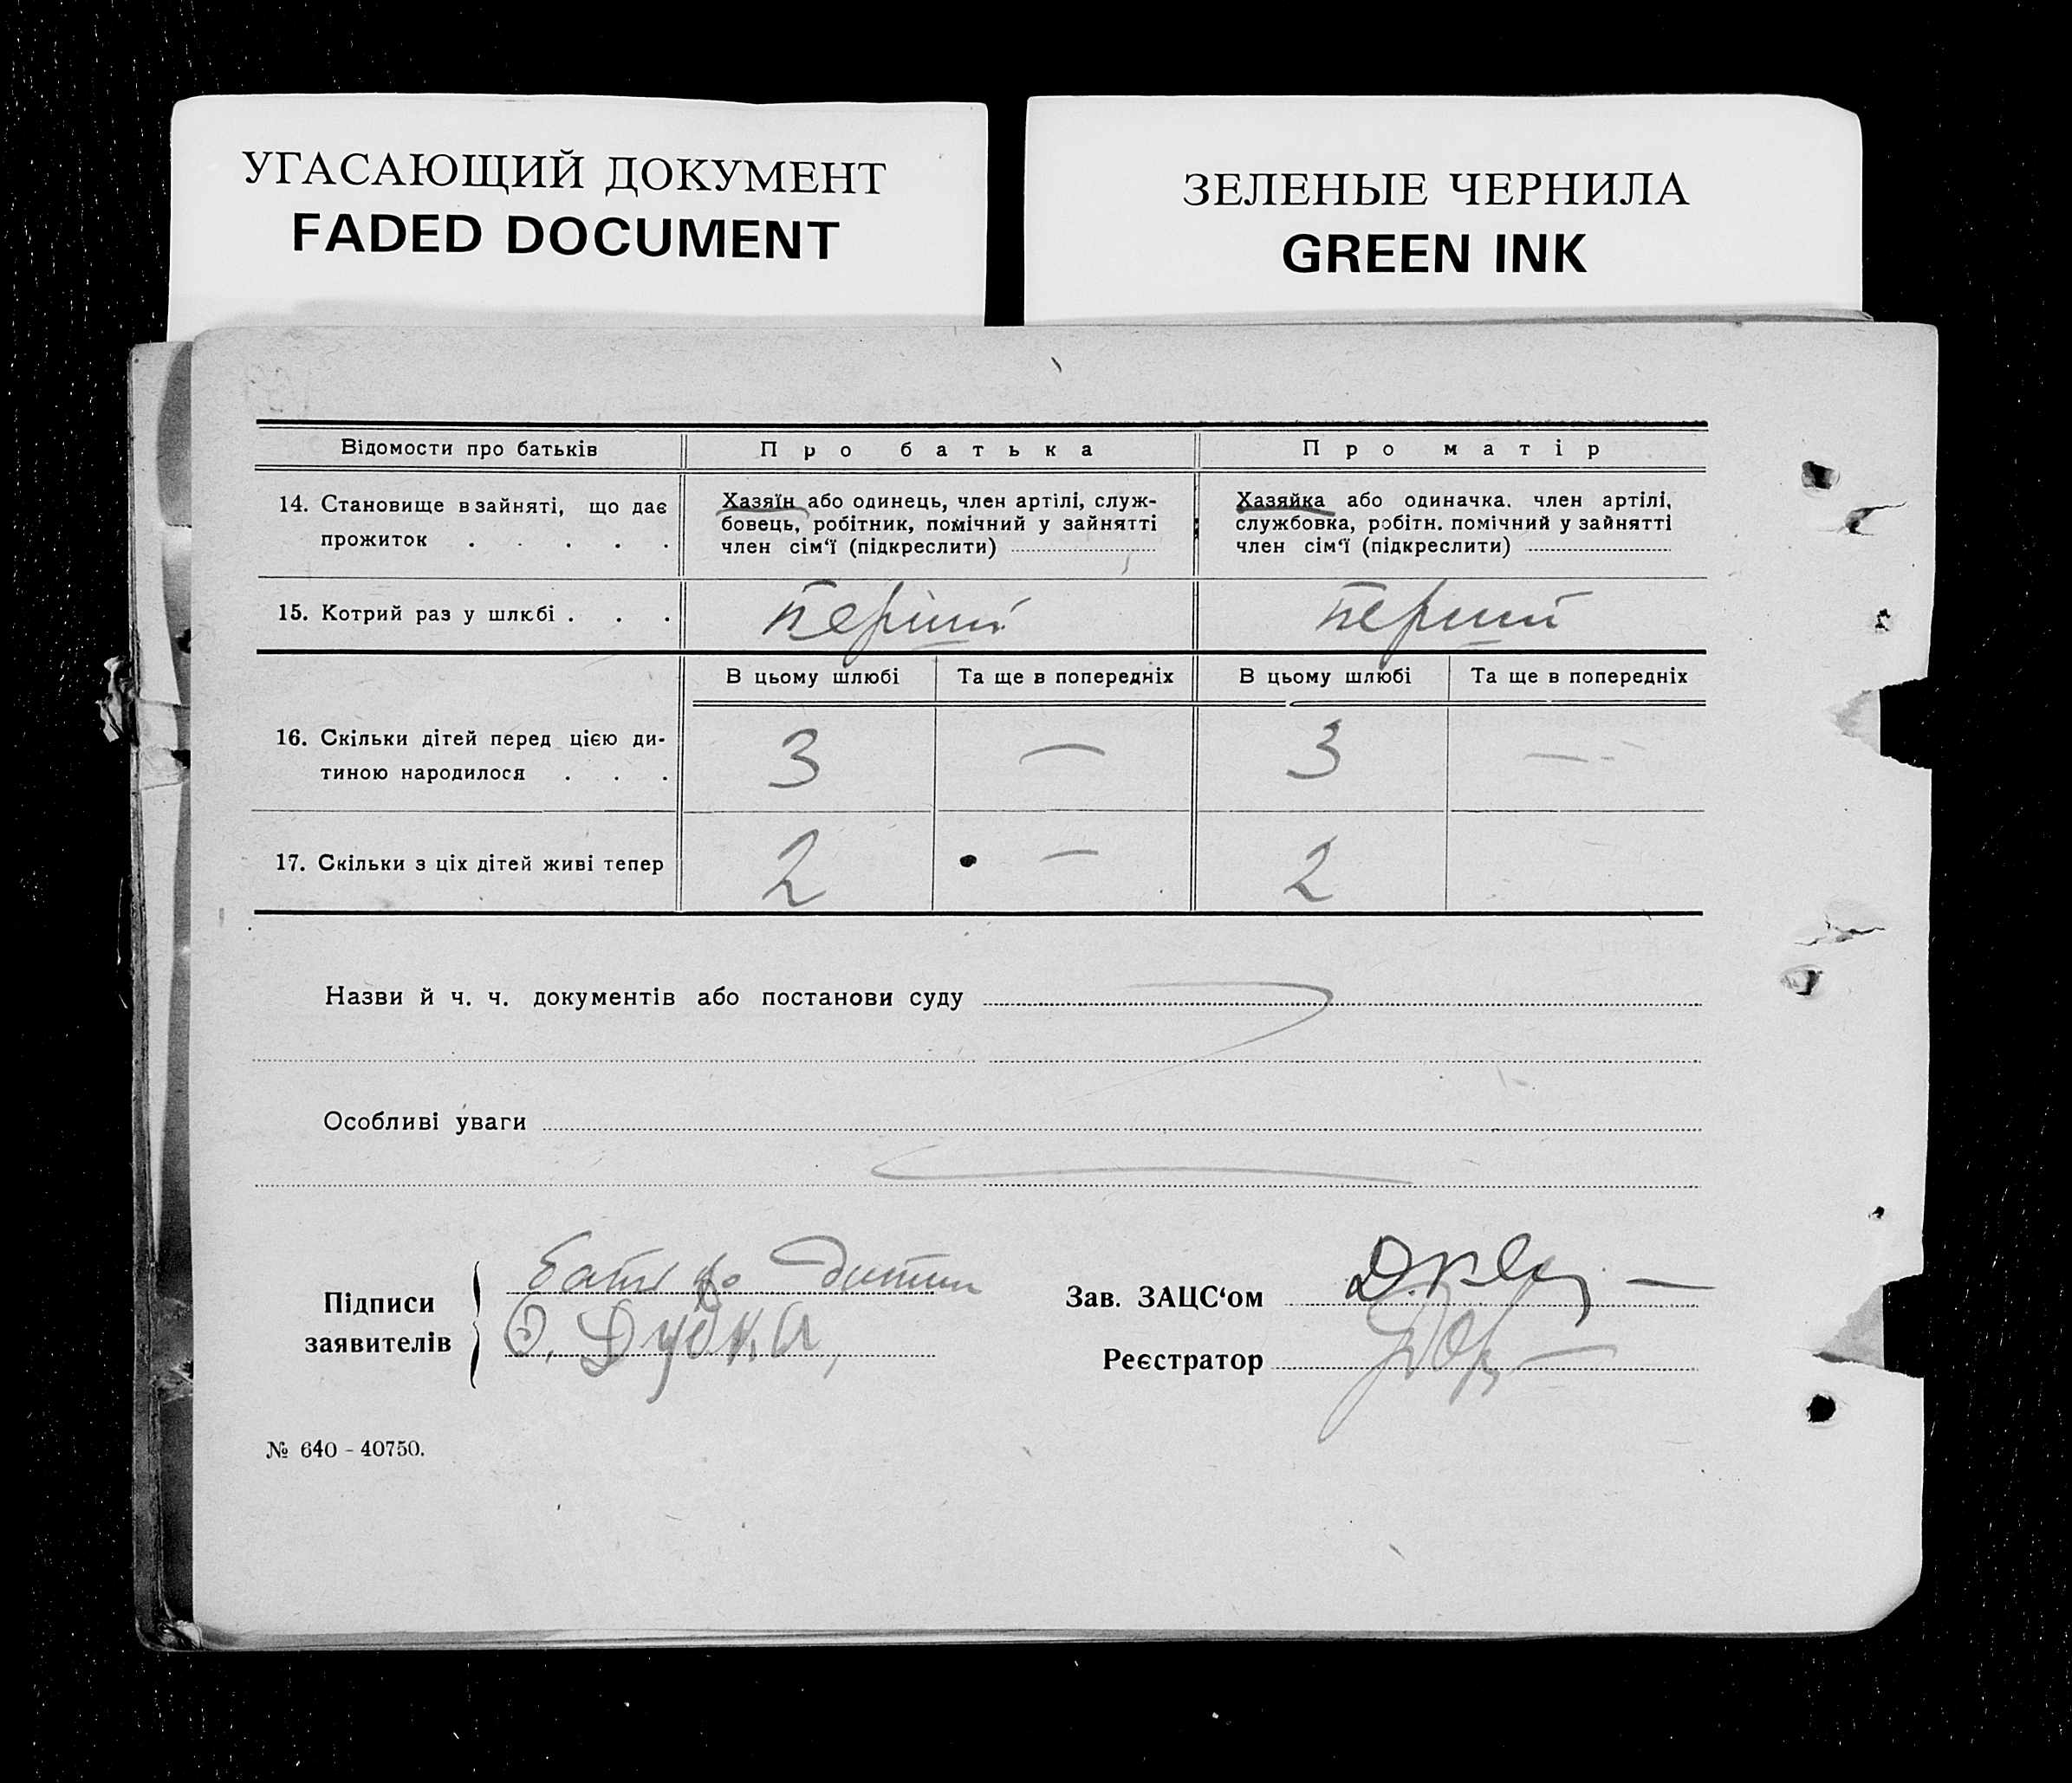 УГАСАЮЩИЙ ДОКУМЕНТ
FADED DOCUMENT
ЗЕЛЕНЫЕ ЧЕРНИЛА
GREEN INK
Відомости про батьків Про батька Про матір
14. Становище в зайняті, що дає
прожиток . . . . .
Хазяїн або одинець, член артілі, служ-
бовець, робітник, помічний у зайнятті
член сім‘ї (підкреслити)
Хазяйка або одиначка. член артілі,
службовка, робітн. помічний у зайнятті
член сім‘ї (підкреслити)
15. Котрий раз у шлюбі . . . перший перший
В цьому шлюбі Та ще в попередніх В цьому шлюбі Та ще в попередніх
16. Скільки дітей перед цією ди-
тиною народилося . . . 3 — 3 —
17. Скільки з ціх дітей живі тепер 2 — 2
Назви й ч. ч. документів або постанови суду
Особливі уваги
Підписи
заявителів
батько дитини
Дубка
Зав. ЗАЦС‘ом
Реєстратор
№ 640 - 40750.